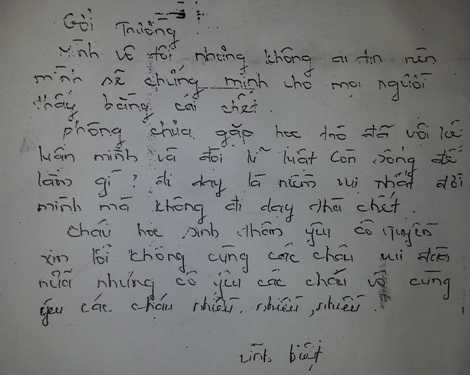 Gởi Trưởng
Mình vô tội nhưng không ai tin nên
mình sẽ chứng minh cho mọi người
thấy bằng cái chết.
phòng chưa gặp học trò đã vội kế
luận mình và đòi kỉ luật còn sống để
làm gì? đi dạy là niềm vui nhất đời
mình mà không đi dạy thà chết.
Cháu học sinh thân yêu cô
xin lỗi không cùng các cháu vui đến
nữa nhưng cô yêu các cháu vô cùng
yêu các cháu nhiều, nhiều, nhiều.
vĩnh biệt